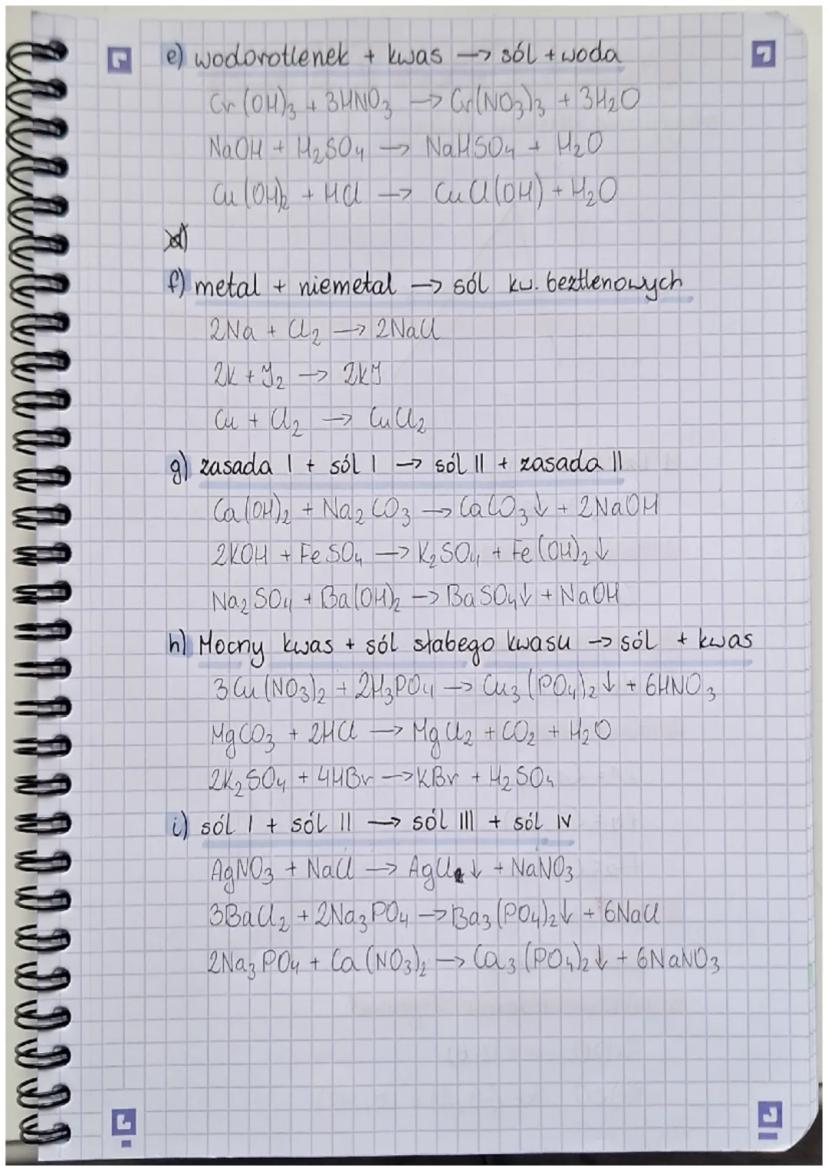 e) wodorotlenek + kwas → sól + woda
Cr(OH)₃ + 3HNO₃ → Cr(NO₃)₃ + 3H₂O
NaOH + H₂SO₄ → NaHSO₄ + H₂O
Cu(OH)₂ + HCl → CuCl(OH) + H₂O
f) metal + niemetal → sól kw. beztlenowych
2Na + Cl₂ → 2NaCl
2K + J₂ → 2KJ
Cu + Cl₂ → CuCl₂
g) zasada I + sól I → sól II + zasada II
Ca(OH)₂ + Na₂CO₃ → CaCO₃↓ + 2NaOH
2KOH + FeSO₄ → K₂SO₄ + Fe(OH)₂↓
Na₂SO₄ + Ba(OH)₂ → BaSO₄↓ + NaOH
h) Mocny kwas + sól słabego kwasu → sól + kwas
3Cu(NO₃)₂ + 2H₃PO₄ → Cu₃(PO₄)₂↓ + 6HNO₃
MgCO₃ + 2HCl → MgCl₂ + CO₂ + H₂O
2K₂SO₄ + 4HBr → KBr + H₂SO₄
i) sól I + sól II → sól III + sól IV
AgNO₃ + NaCl → AgCl↓ + NaNO₃
3BaCl₂ + 2Na₃PO₄ → Ba₃(PO₄)₂↓ + 6NaCl
2Na₃PO₄ + Ca(NO₃)₂ → Ca₃(PO₄)₂↓ + 6NaNO₃